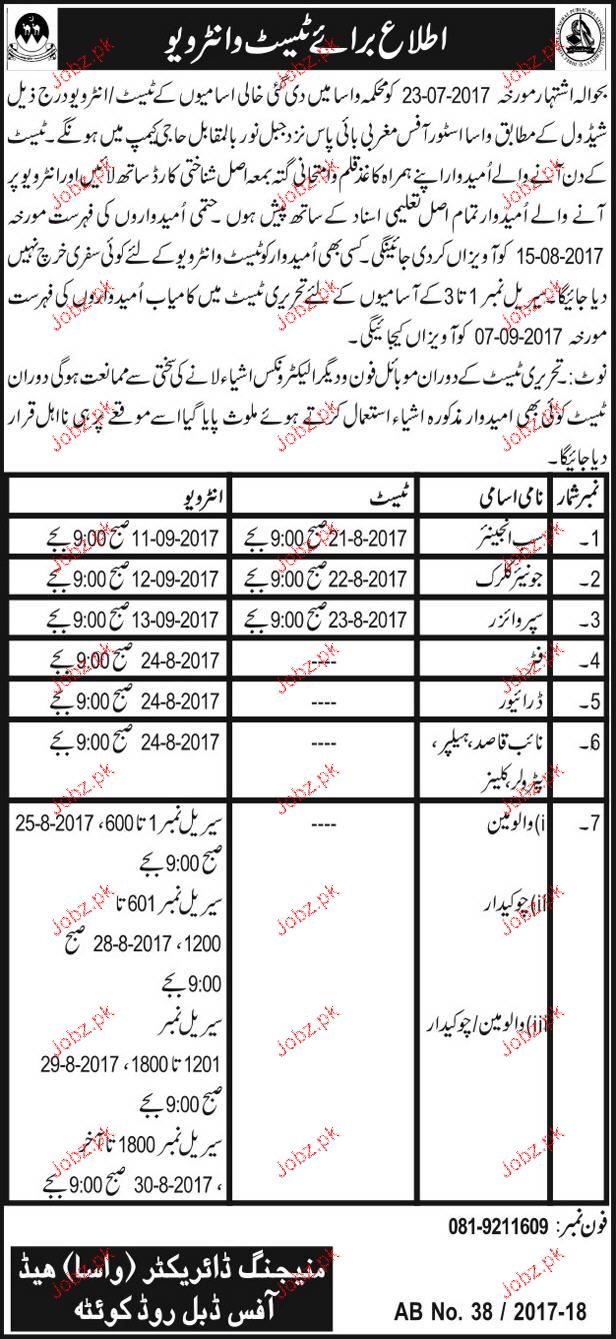 اطلاع برائے ٹیسٹ و انٹرویو
بحوالہ اشتہار مورخہ 23-07-2017 کو محکمہ واسا میں دی گئی خالی اسامیوں کے ٹیسٹ/انٹرویو درج ذیل
شیڈول کے مطابق واسا اسٹور آفس مغربی بائی پاس نزد جبل نور بالمقابل حاجی کیمپ میں ہونگے۔ ٹیسٹ
کے دن آنے والے اُمیدوار اپنے ہمراہ کاغذ قلم و امتحانی گتہ بمعہ اصل شناختی کارڈ ساتھ لائیں اور انٹرویو پر
آنے والے اُمیدوار تمام اصل تعلیمی اسناد کے ساتھ پیش ہوں۔ حتمی اُمیدواروں کی فہرست مورخہ
15-08-2017 کو آویزاں کردی جائینگی۔ کسی بھی اُمیدوار کو ٹیسٹ و انٹرویو کے لئے کوئی سفری خرچ نہیں
دیا جائیگا۔ سیریل نمبر 1 تا 3 کے آسامیوں کے لئے تحریری ٹیسٹ میں کامیاب اُمیدواروں کی فہرست
مورخہ 07-09-2017 کو آویزاں کیجائیگی۔
نوٹ: تحریری ٹیسٹ کے دوران موبائل فون و دیگر الیکٹرونکس اشیاء لانے کی سختی سے ممانعت ہوگی دوران
ٹیسٹ کوئی بھی امیدوار مذکورہ اشیاء استعمال کرتے ہوئے ملوث پایا گیا اسے موقعے پر ہی نااہل قرار
دیا جائیگا۔
نمبر شمار نامی اسامی ٹیسٹ انٹرویو
1۔ سب انجینئر 21-8-2017 صبح 9:00 بجے 11-09-2017 صبح 9:00 بجے
2۔ جونیئر کلرک 22-8-2017 صبح 9:00 بجے 12-09-2017 صبح 9:00 بجے
3۔ سپروائزر 23-8-2017 صبح 9:00 بجے 13-09-2017 صبح 9:00 بجے
4۔ فٹر ---- 24-8-2017 صبح 9:00 بجے
5۔ ڈرائیور ---- 24-8-2017 صبح 9:00 بجے
6۔ نائب قاصد، ہیلپر، ---- 24-8-2017 صبح 9:00 بجے
پیٹرولر، کلینر
7۔ i) والومین ---- سیریل نمبر 1 تا 600، 25-8-2017
صبح 9:00 بجے
ii) چوکیدار سیریل نمبر 601 تا
1200، 28-8-2017 صبح
9:00 بجے
iii) والومین/چوکیدار سیریل نمبر
1201 تا 1800، 29-8-2017
صبح 9:00 بجے
سیریل نمبر 1800 تا آخر
، 30-8-2017 صبح 9:00 بجے
فون نمبر: 081-9211609
منیجنگ ڈائریکٹر (واسا) ھیڈ
آفس ڈبل روڈ کوئٹہ
AB No. 38 / 2017-18
Jobz.pk